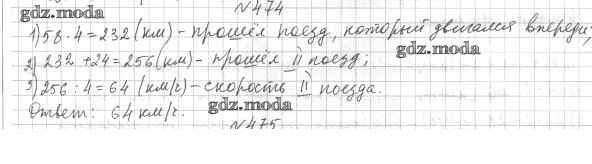 N474
gdz.moda
1) 58·4=232 (км) - прошёл поезд, который двигался впереди;
gdz.moda
2) 232 + 24 = 256 (км) - прошёл II поезд;
3) 256 : 4 = 64 (км/г) - скорость II поезда.
gdz.moda
Ответ: 64 км/г.
gdz.moda
N475